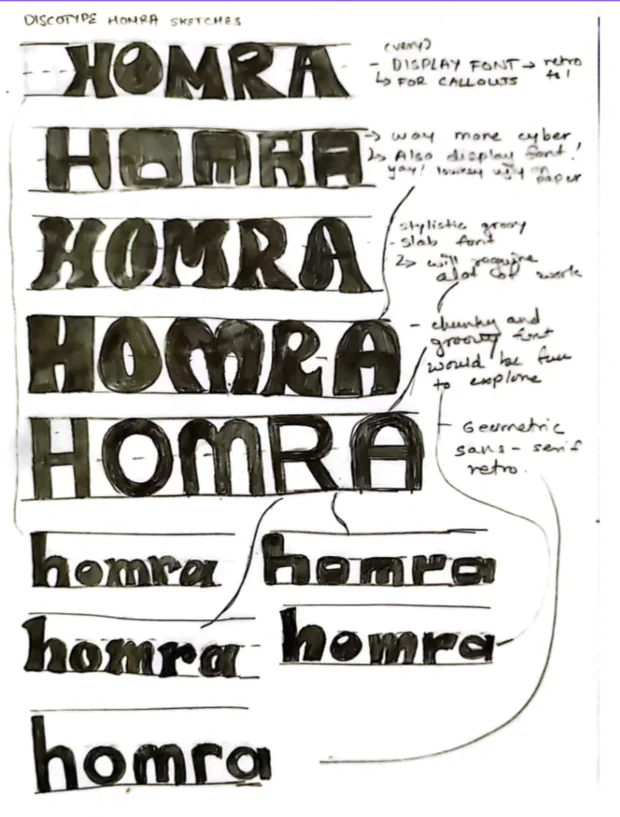 DISCOTYPE HOMRA SKETCHES
HOMRA
(very)
- DISPLAY FONT → retro
↳ FOR CALLOUTS
HOMRA
→ way more cyber
↳ Also display font!
yay! lowkey ugly on paper
HOMRA
stylistic groovy
- slab font
↳ will require
alot of work
HOMRA
- chunky and
groovy font
would be fun
to explore
HOMRA
- Geometric
sans-serif
retro.
homra
homra
homra
homra
homra